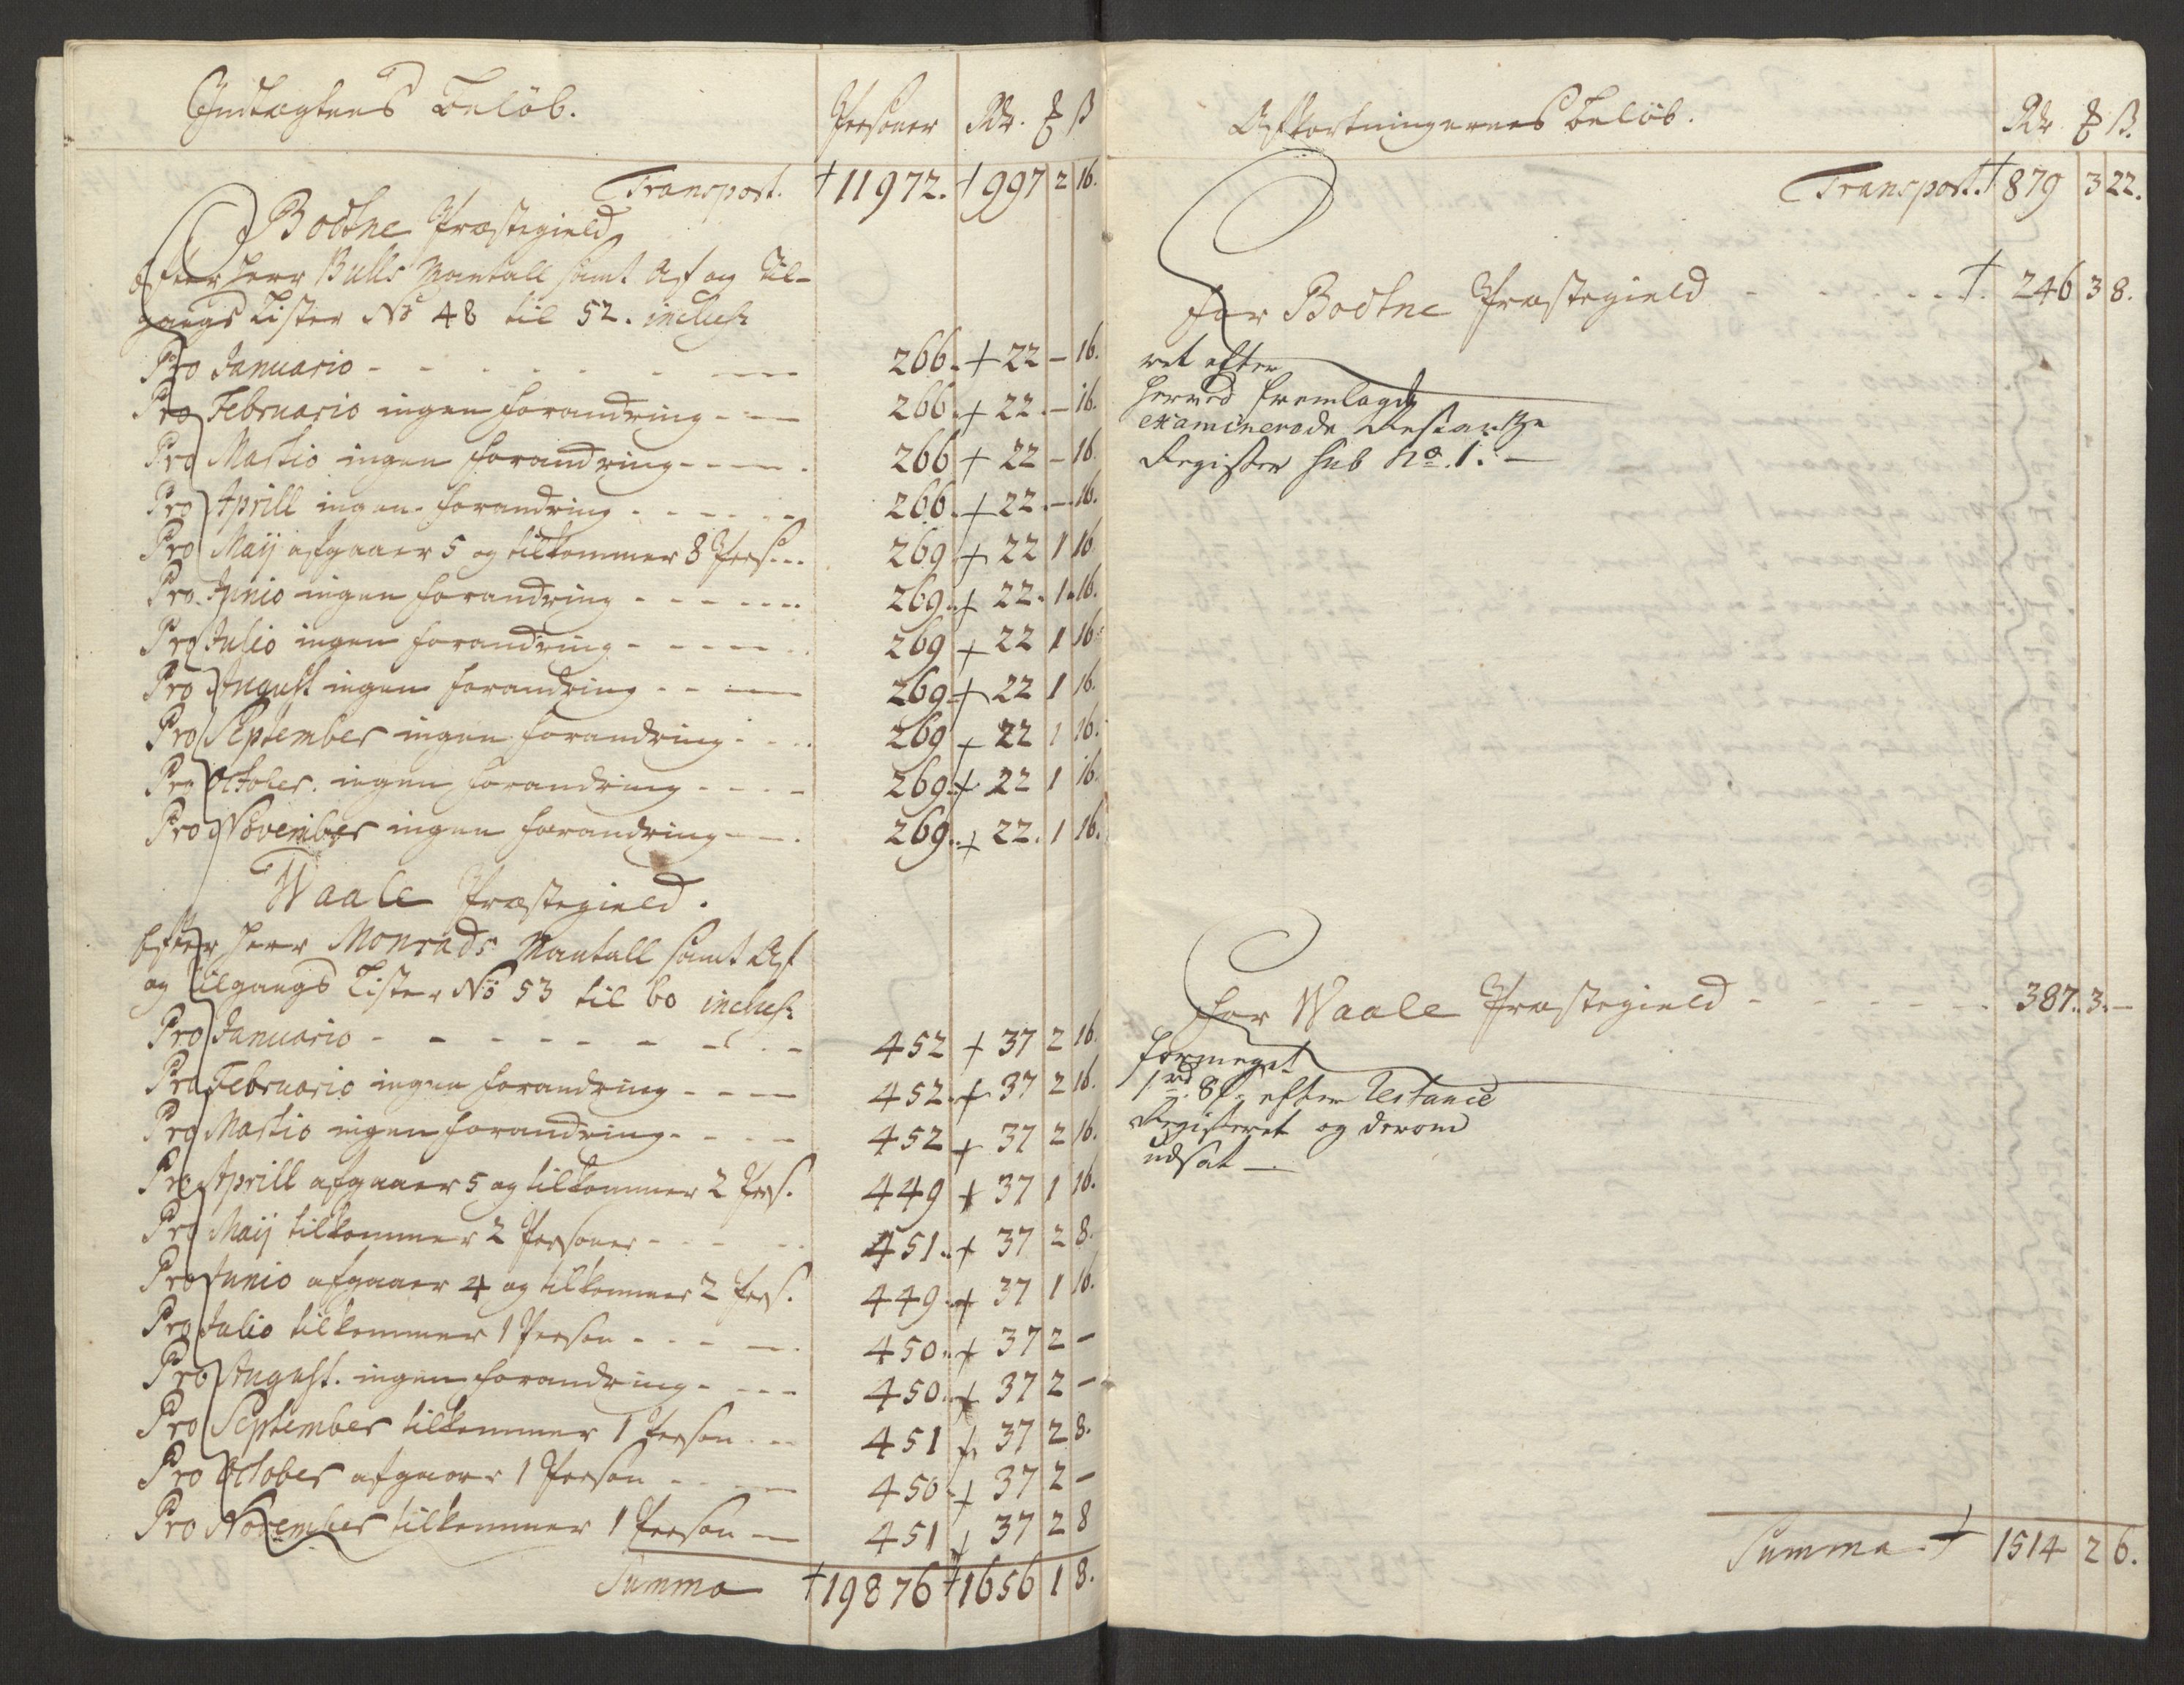 Indtægtens Beløb. Personer Rdr. ₰ ß
Transport. † 11972. † 997 2 16.
Bodtne Præstegield
Efter Herr Bulls Mantall samt Af og Til-
gangs Lister No 48 til 52. inclus:
Pro Januario - - - - - - - 266. + 22 - 16.
Pro Februario ingen forandring - - - 266. + 22. - 16.
Pro Martio ingen forandring - - - - . 266 + 22 - 16.
Pro Aprill ingen forandring - - - - - - 266. + 22. - 16.
Pro Maij afgaaer 5 og tilkommer 8 Pers. - - 269 + 22 1 16
Pro Junio ingen forandring - - - - - - 269. + 22. 1. 16.
Pro Julio ingen forandring - - - - - - 269 + 22 1 16.
Pro August ingen forandring - - - - 269 + 22 1 16.
Pro September ingen forandring - - - 269 + 22 1 16.
Pro October. ingen forandring - - - - 269. + 22 1 16.
Pro November ingen forandring - - - 269. + 22. 1 16.
Waale Præstegield.
Efter Herr Monrads Mantall samt Af
og tilgangs Lister No 53 til 60 inclus:
Pro Januario - - - - - - - - - 452 + 37 2 16.
Pro Februario ingen forandring - - - - 452. + 37 2 16.
Pro Martio ingen forandring - - - - 452 + 37 2 16.
Pro Aprill afgaaer 5 og tilkommer 2 Pers. 449 + 37 1 16.
Pro Maij tilkommer 2 Personer - - - - - 451. + 37 2 8.
Pro Junio afgaaer 4 og tilkommer 2 Pers. 449. + 37 1 16.
Pro Julio tilkommer 1 Person - - - - - 450. + 37 2 -
Pro August. ingen forandring - - - - 450. + 37 2 -
Pro September tilkommer 1 Person - - 451 + 37 2 8.
Pro October afgaaer 1 Person - - - - 450 + 37 2 -
Pro November tilkommer 1 Person - 451 + 37 2 8
Summa † 19876 † 1656 1 8.
Afkortningernes Beløb. Rdr ₰ ß.
Transport. † 879 3 22.
For Bodtne Præstegield - - - - - †. 246 3 8.
ret efter
herved fremlagde
examinerede Restantze
Register sub No. 1. -
For Waale Præstegield - - - - - - . 387. 3. -
formeget
1 rd 8 ß. efter Restance
Registeret og derom
udsat -.
Summa † 1514 2 6.